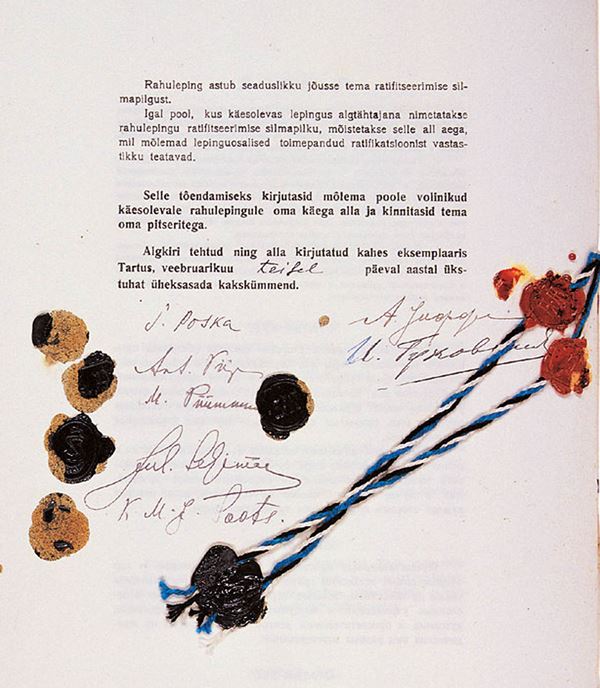 Rahuleping astub seaduslikku jõusse tema ratifitseerimise sil-
mapilgust.
Igal pool, kus käesolevas lepingus algtähtajana nimetatakse
rahulepingu ratifitseerimise silmapilku, mõistetakse selle all aega,
mil mõlemad lepinguosalised toimepandud ratifikatsioonist vastas-
tikku teatavad.
Selle tõendamiseks kirjutasid mõlema poole volinikud
käesolevale rahulepingule oma käega alla ja kinnitasid tema
oma pitseritega.
Algkiri tehtud ning alla kirjutatud kahes eksemplaaris
Tartus, veebruarikuu teisel päeval aastal üks-
tuhat üheksasada kakskümmend.
J. Poska
А. Иоффе
Ant. Piip
M. Püümann
Jul. Seljamaa
K. M. J. Soots.